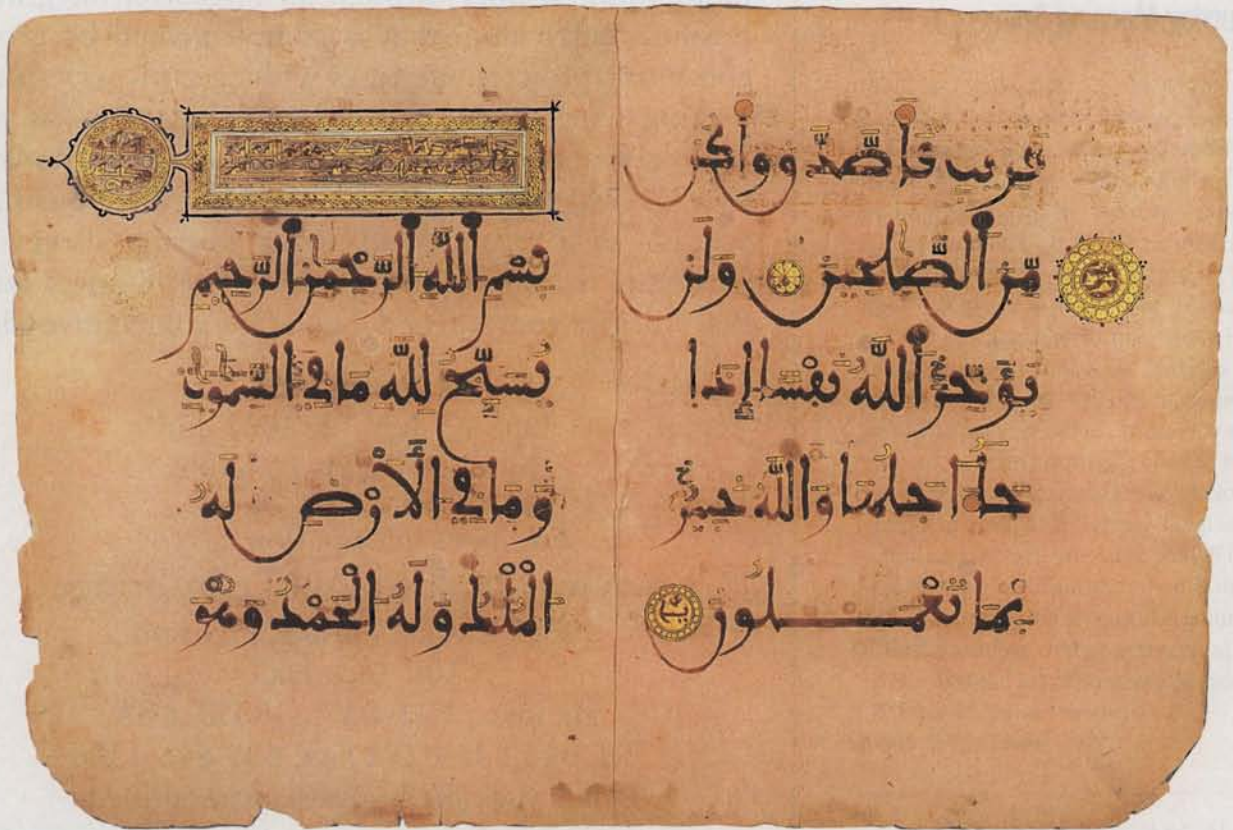 قريب فأصّدّق وأكن
مّن ألصّلحين ولن
يؤخر ألله نفسا إذا
جا أجلها والله خبير
بما تعملون
بسم ألله ألرّحمن ألرّحيم
يسبّح لله ما في السّموت
وما في الأرض له
الملك وله الحمد وهو